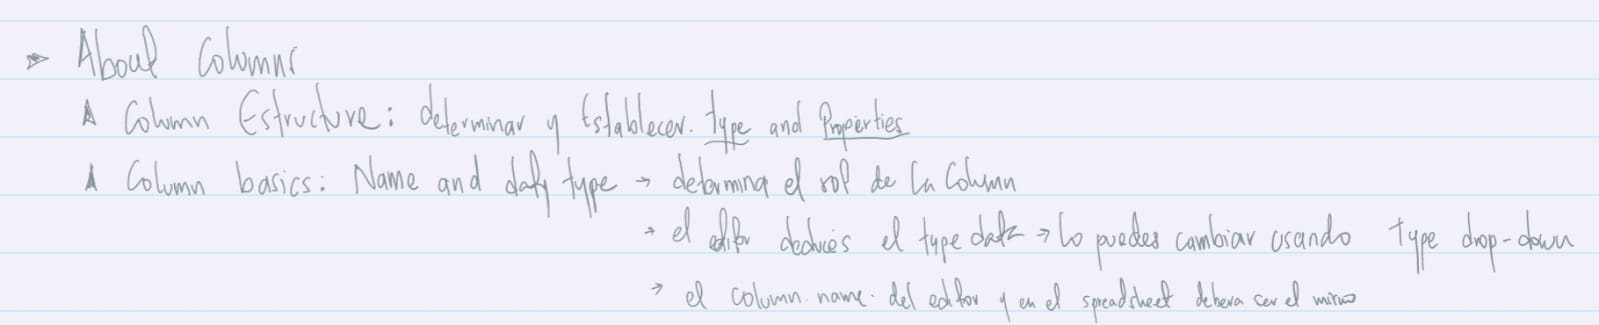 ➤ About Columns
Column Estructure: determinar y Establecer. type and Properties
Column basics: Name and data type → determina el rol de la Column
→ el editor deduces el type data → lo puedes cambiar usando type drop-down
→ el column.name. del editor y en el spreadsheet debera ser el mismo